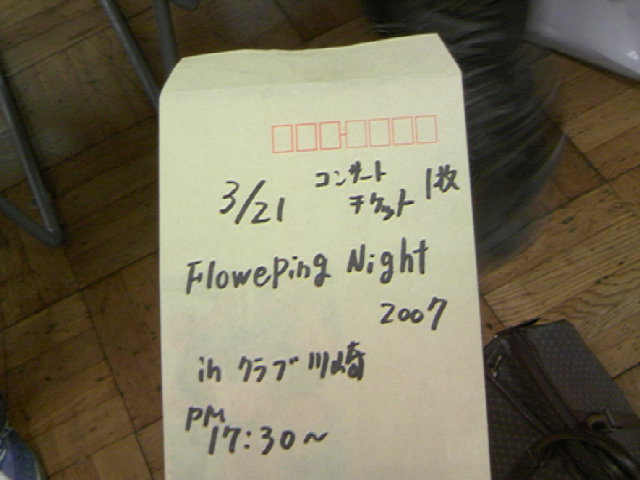 3/21 コンサート
チケット 1枚
Floweping Night
2007
in クラブ川崎
PM
17:30~